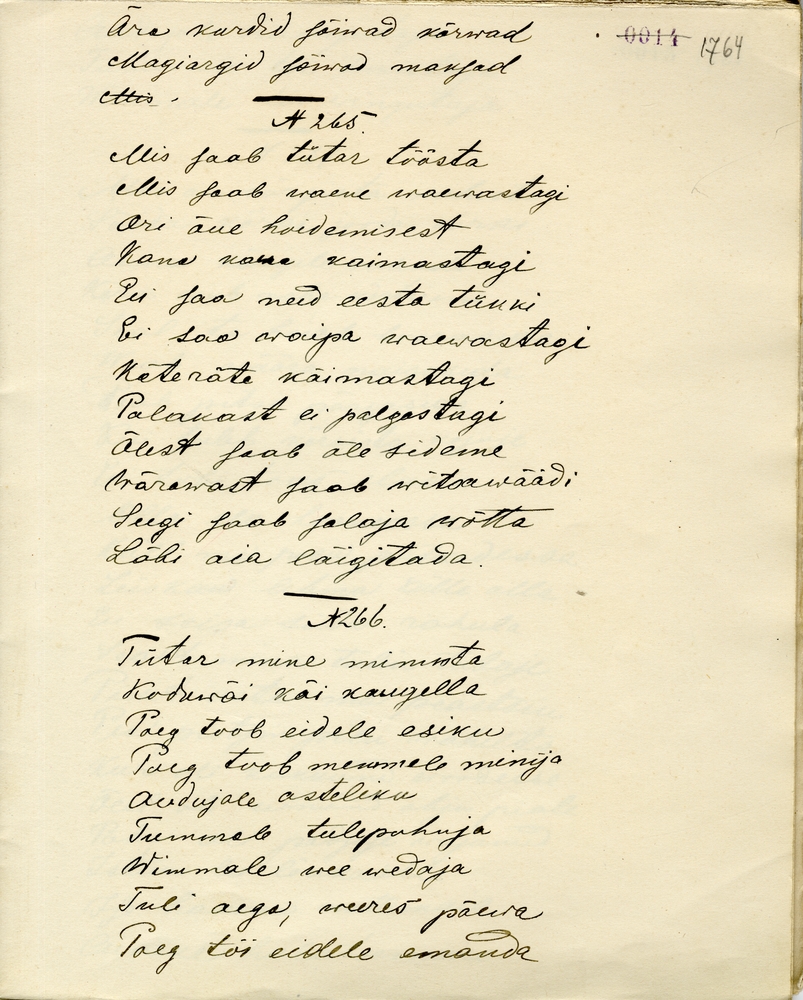 Ära kurdid sõiwad kõrwad
0014 1764
Magiargid sõiwad maksad
Mis
N 265.
Mis saab tütar töösta
Mis saab waene waewastagi
Ori õue hoidemisest
Kana kaimastagi
Ei saa neid eesta tükki
Ei saa waipa waewastagi
Käteräte käimastagi
Palakast ei palgastagi
Õlest saab õle sideme
Wärawast saab witsawäädi
Seegi saab salaja wõtta
Läbi aia laigitada.
N 266.
Tütar mine minusta
Koduwäi käi kaugella
Poeg toob eidele esiku
Poeg toob memmele minija
Audujale asteliku
Tummale tulepuhuja
Wimmale wee wedaja
Tuli aega, weeres päewa
Poeg tõi eidele emanda